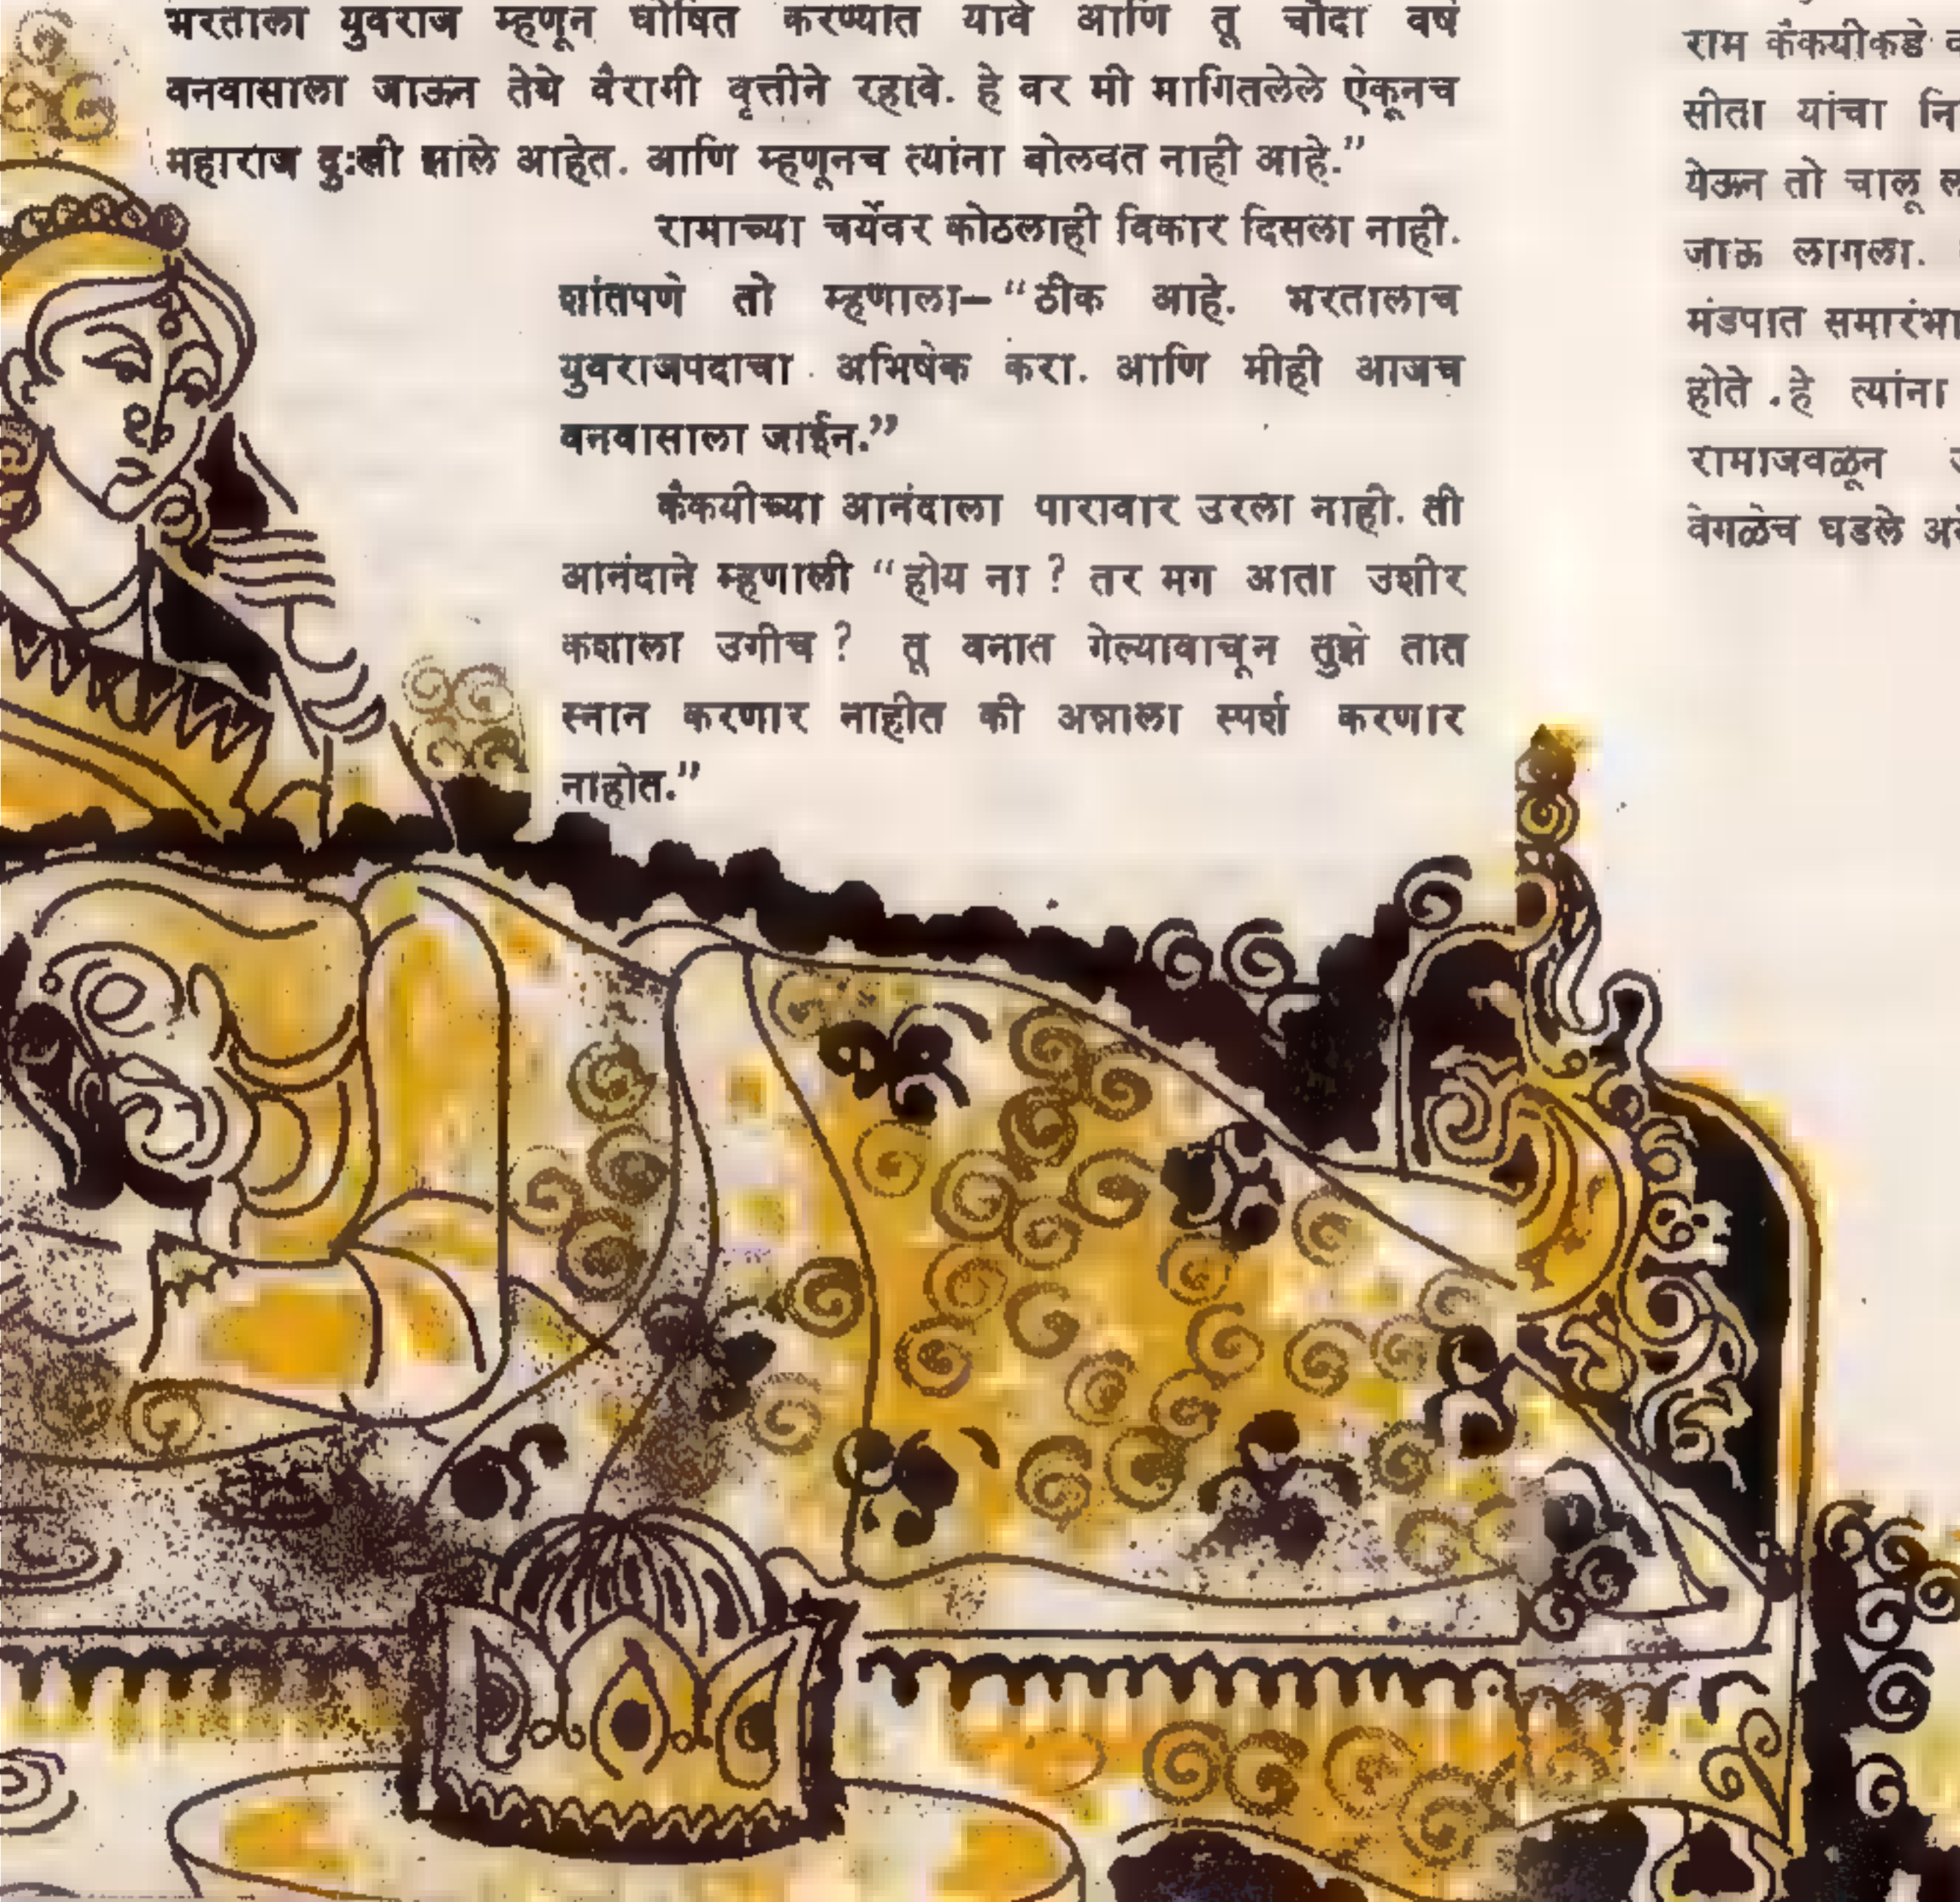 भरताला युवराज म्हणून घोषित करण्यात यावे आणि तू चौदा वर्षं
वनवासाला जाऊन तेथे वैरागी वृत्तीने रहावे. हे वर मी मागितलेले ऐकूनच
महाराज दुःखी झाले आहेत. आणि म्हणूनच त्यांना बोलवत नाही आहे.”
रामाच्या चर्येवर कोठलाही विकार दिसला नाही.
शांतपणे तो म्हणाला– “ठीक आहे. भरतालाच
युवराजपदाचा अभिषेक करा. आणि मीही आजच
वनवासाला जाईन.”
कैकयीच्या आनंदाला पारावार उरला नाही. ती
आनंदाने म्हणाली “होय ना ? तर मग आता उशीर
कशाला उगीच ? तू वनात गेल्यावाचून तुझे तात
स्नान करणार नाहीत की अन्नाला स्पर्श करणार
नाहीत.”
राम कैकयीकडे
सीता यांचा
येऊन तो चालू
जाऊ लागला.
मंडपात
होते .हे त्यांना
रामाजवळून
वेगळेच घडले